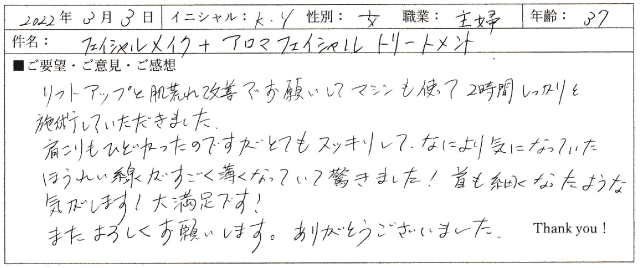 2022年 3月 3日 イニシャル： K.Y 性別： 女 職業： 主婦 年齢： 37
件名： フェイシャルメイク＋アロマフェイシャルトリートメント
■ご要望・ご意見・ご感想
リフトアップと肌荒れ改善でお願いしてマシンも使って2時間しっかりと
施術していただきました.
肩こりもひどかったのですがとてもスッキリして、なにより気になっていた
ほうれい線がすごく薄くなっていて驚きました！首も細くなったような
気がします！大満足です！
またよろしくお願いします。ありがとうございました. Thank you！